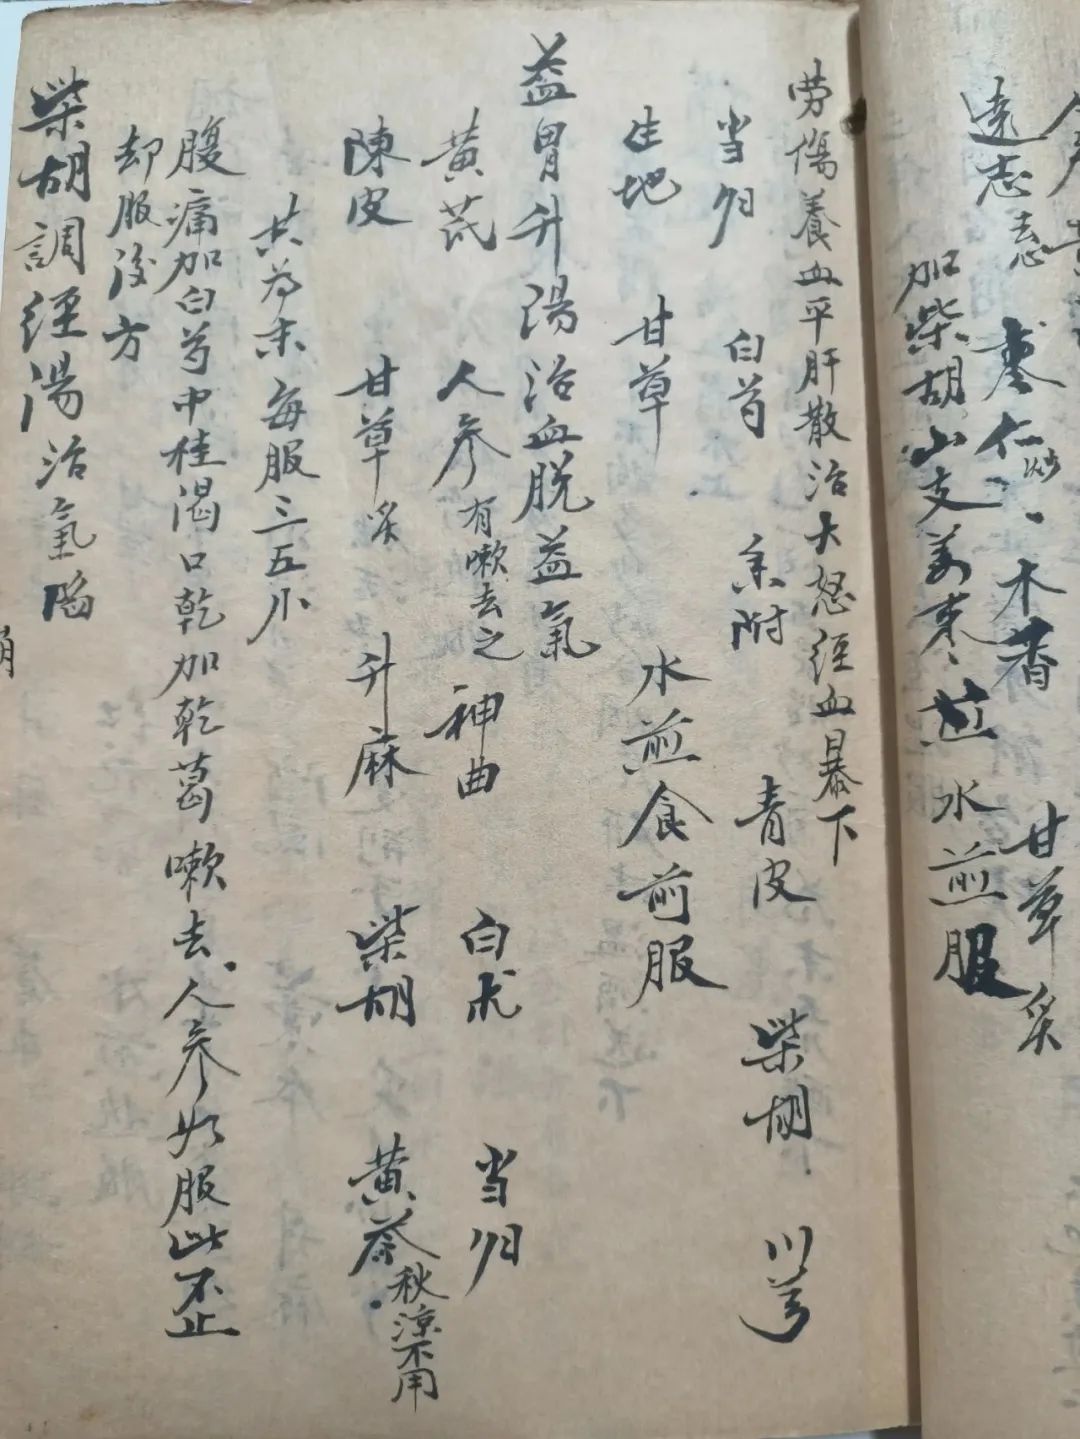 遠志去心 棗仁炒 木香 甘草炙
加柴胡山支姜枣煎水煎服
劳傷養血平肝散治大怒經血暴下
当归 白芍 香附 青皮 柴胡 川芎
生地 甘草 水煎食前服
益胃升陽湯治血脱益氣
黃芪 人參有嗽去之 神曲 白朮 当归
陳皮 甘草炙 升麻 柴胡 黄芩秋涼不用
共为末每服三五
腹痛加白芍中桂渴口乾加乾葛嗽去人參如服此不止
却服後方
柴胡調經湯治氣陷